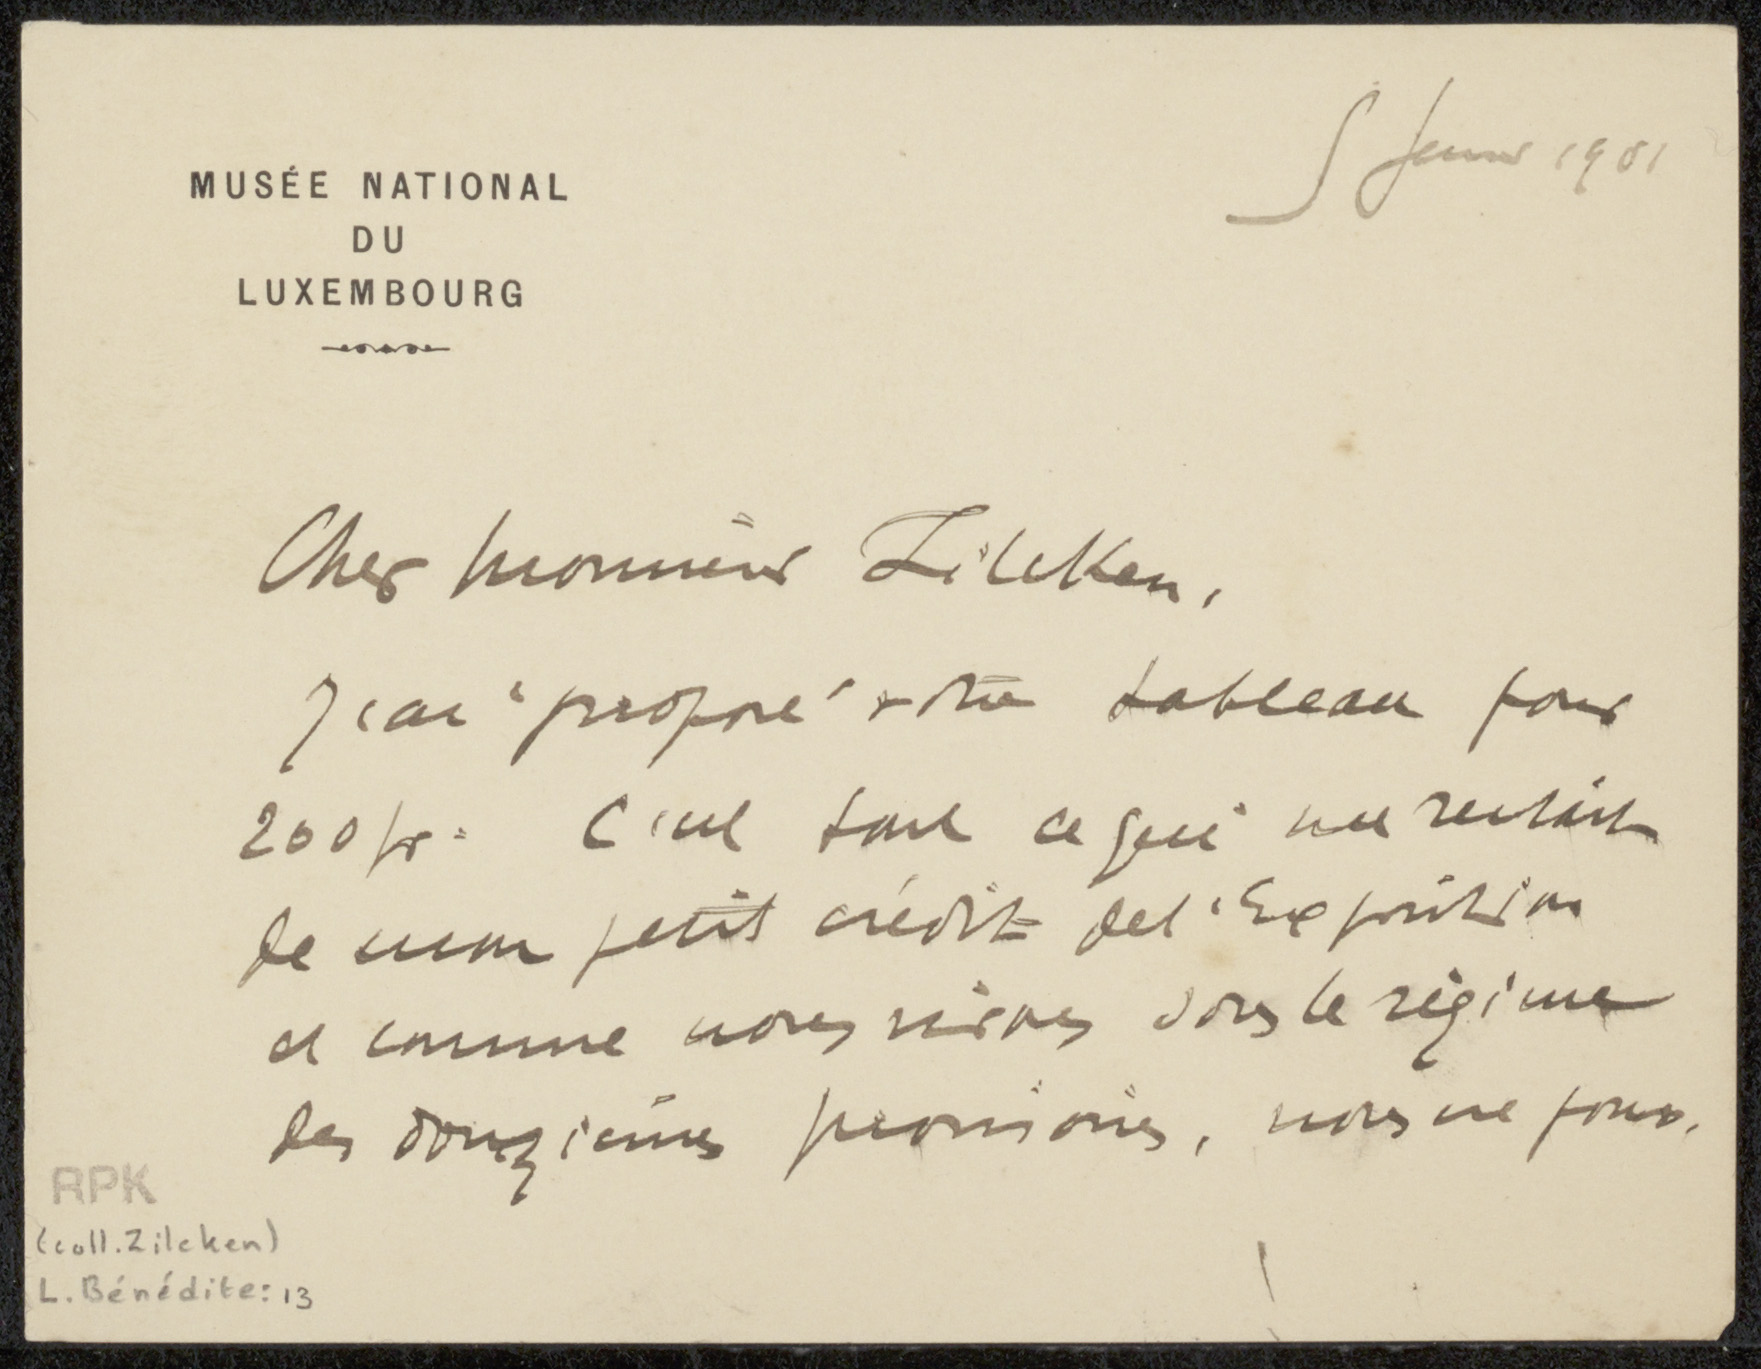 MUSÉE NATIONAL
DU
LUXEMBOURG
5 Janvier 1901
Cher Monsieur Zilcken,
J'ai proposé votre tableau pour
200 fr. C'est tout ce qui me restait
de mon petit crédit de l'Exposition
et comme nous vivons sous le régime
des douzièmes provisoires, nous ne pouv.
RPK
(coll. Zilcken)
L. Bénédite: 13